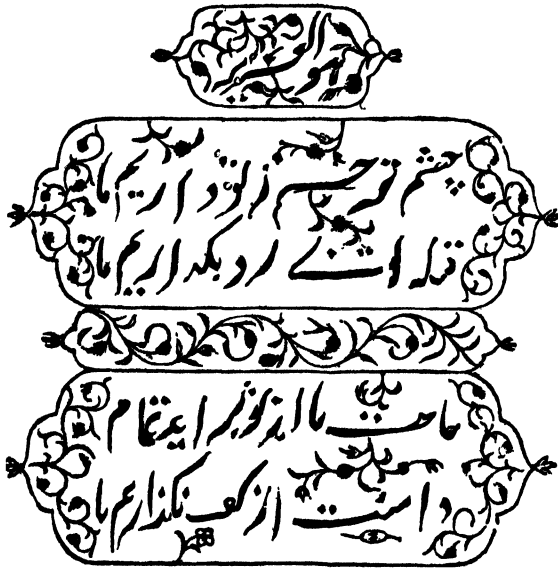 چشم ترحم ز تو داریم ما
قبله توئے رو بکه اریم ما
حاجت ما از تو براید تمام
دامنت از کف نگذاریم ما